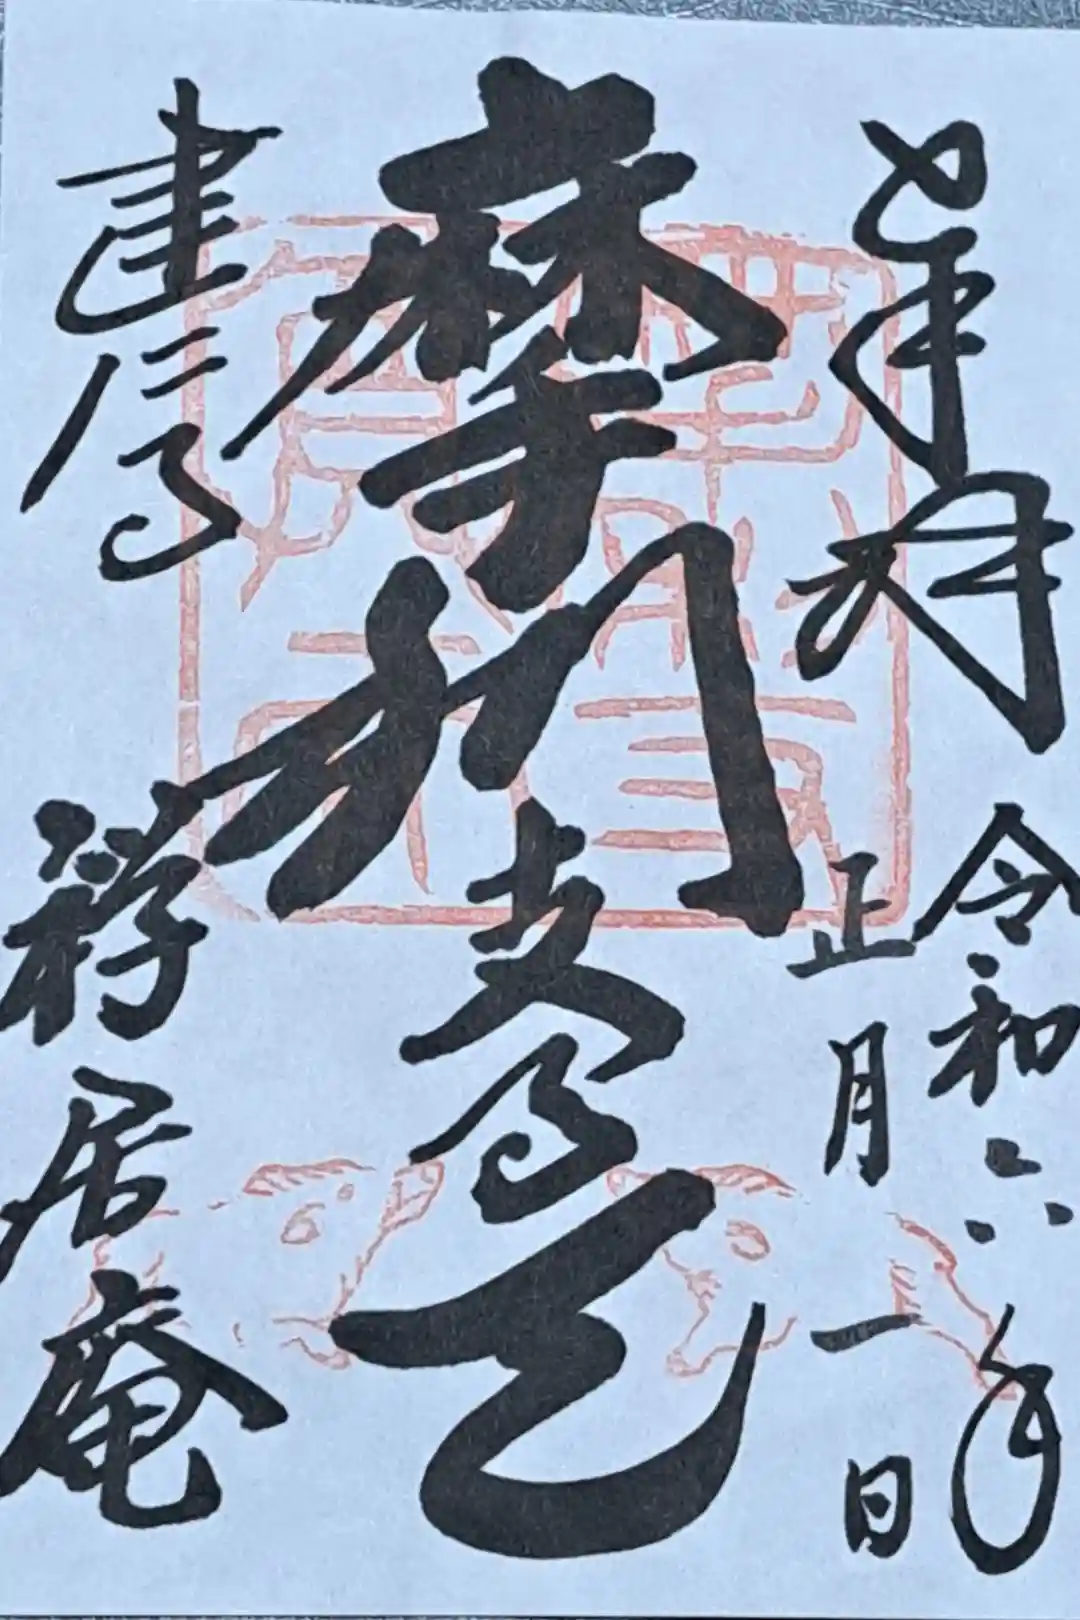 奉拝 令和六年
正月一日
摩利支尊天
建仁寺 禅居庵